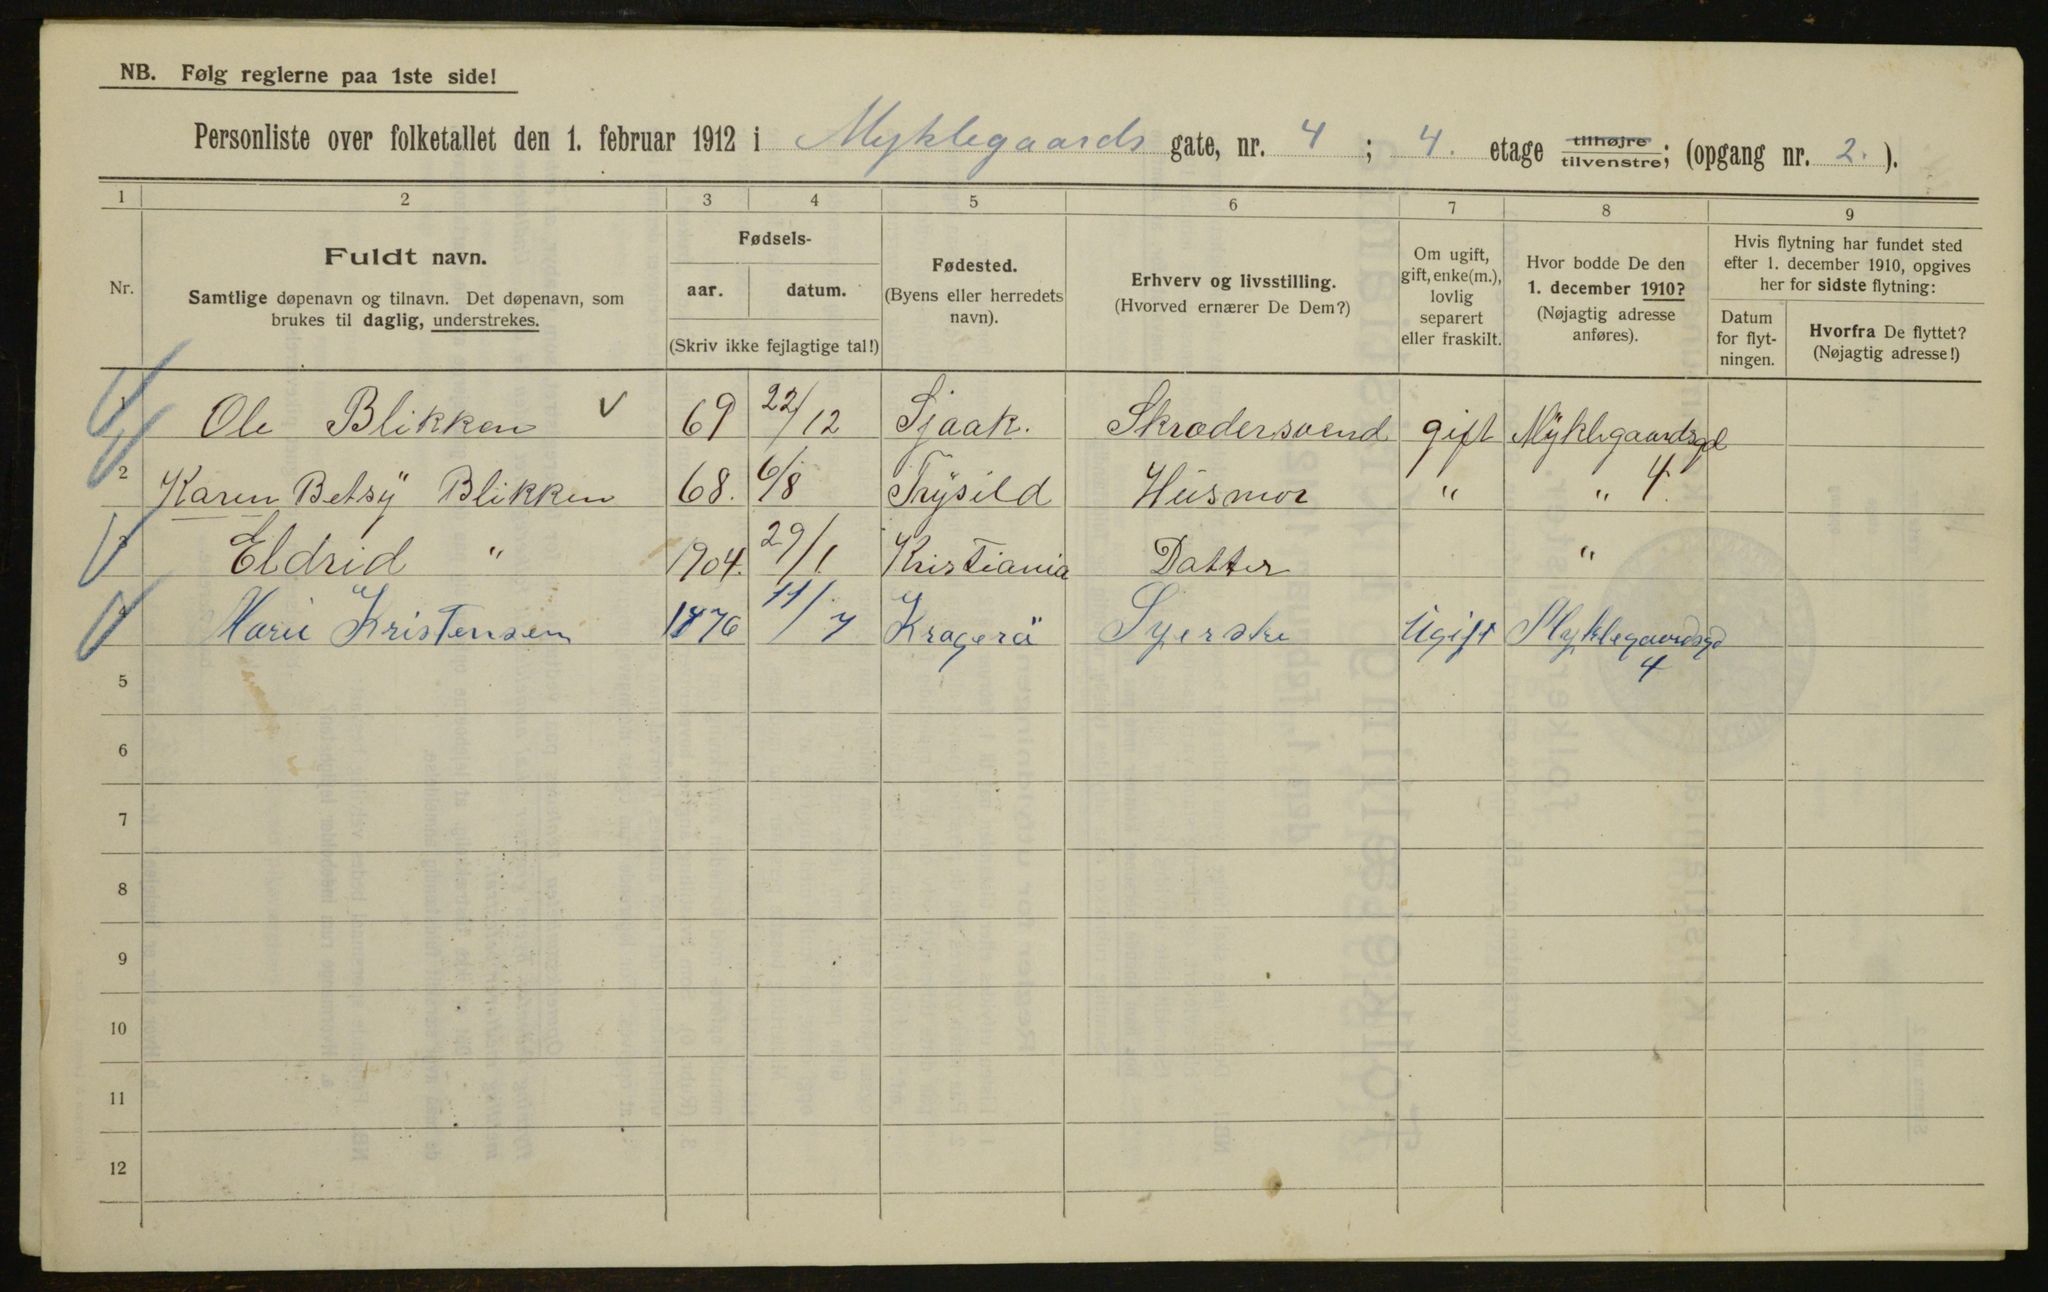 NB. Følg reglerne paa 1ste side!
Personliste over folketallet den 1. februar 1912 i Myklegaards gate, nr. 4 ; 4. etage tilhøjre tilvenstre; (opgang nr. 2. ).
1 2 3 4 5 6 7 8 9
Nr.
Fuldt navn.
Samtlige døpenavn og tilnavn. Det døpenavn, som
brukes til daglig, understrekes.
Fødsels-
aar. datum.
(Skriv ikke fejlagtige tal!)
Fødested.
(Byens eller herredets
navn).
Erhverv og livsstilling.
(Hvorved ernærer De Dem?)
Om ugift,
gift, enke(m.),
lovlig
separert
eller fraskilt.
Hvor bodde De den
1. december 1910?
(Nøjagtig adresse
anføres).
Hvis flytning har fundet sted
efter 1. december 1910, opgives
her for sidste flytning:
Datum
for flyt-
ningen.
Hvorfra De flyttet?
(Nøjagtig adresse!)
1 Ole Blikken 69 22/12 Sjaak. Skrædersvend gift Myklegaardsgd
2 Karen Betsÿ Blikken 68. 6/8 Trÿsild Husmor " " 4.
3 Eldrid " 1904. 29/1. Kristiania Datter "
4 Marie Kristensen 1876 11/7 Kragerö Syerske Ugift Myklegaardsgd
4
5
6
7
8
9
10
11
12